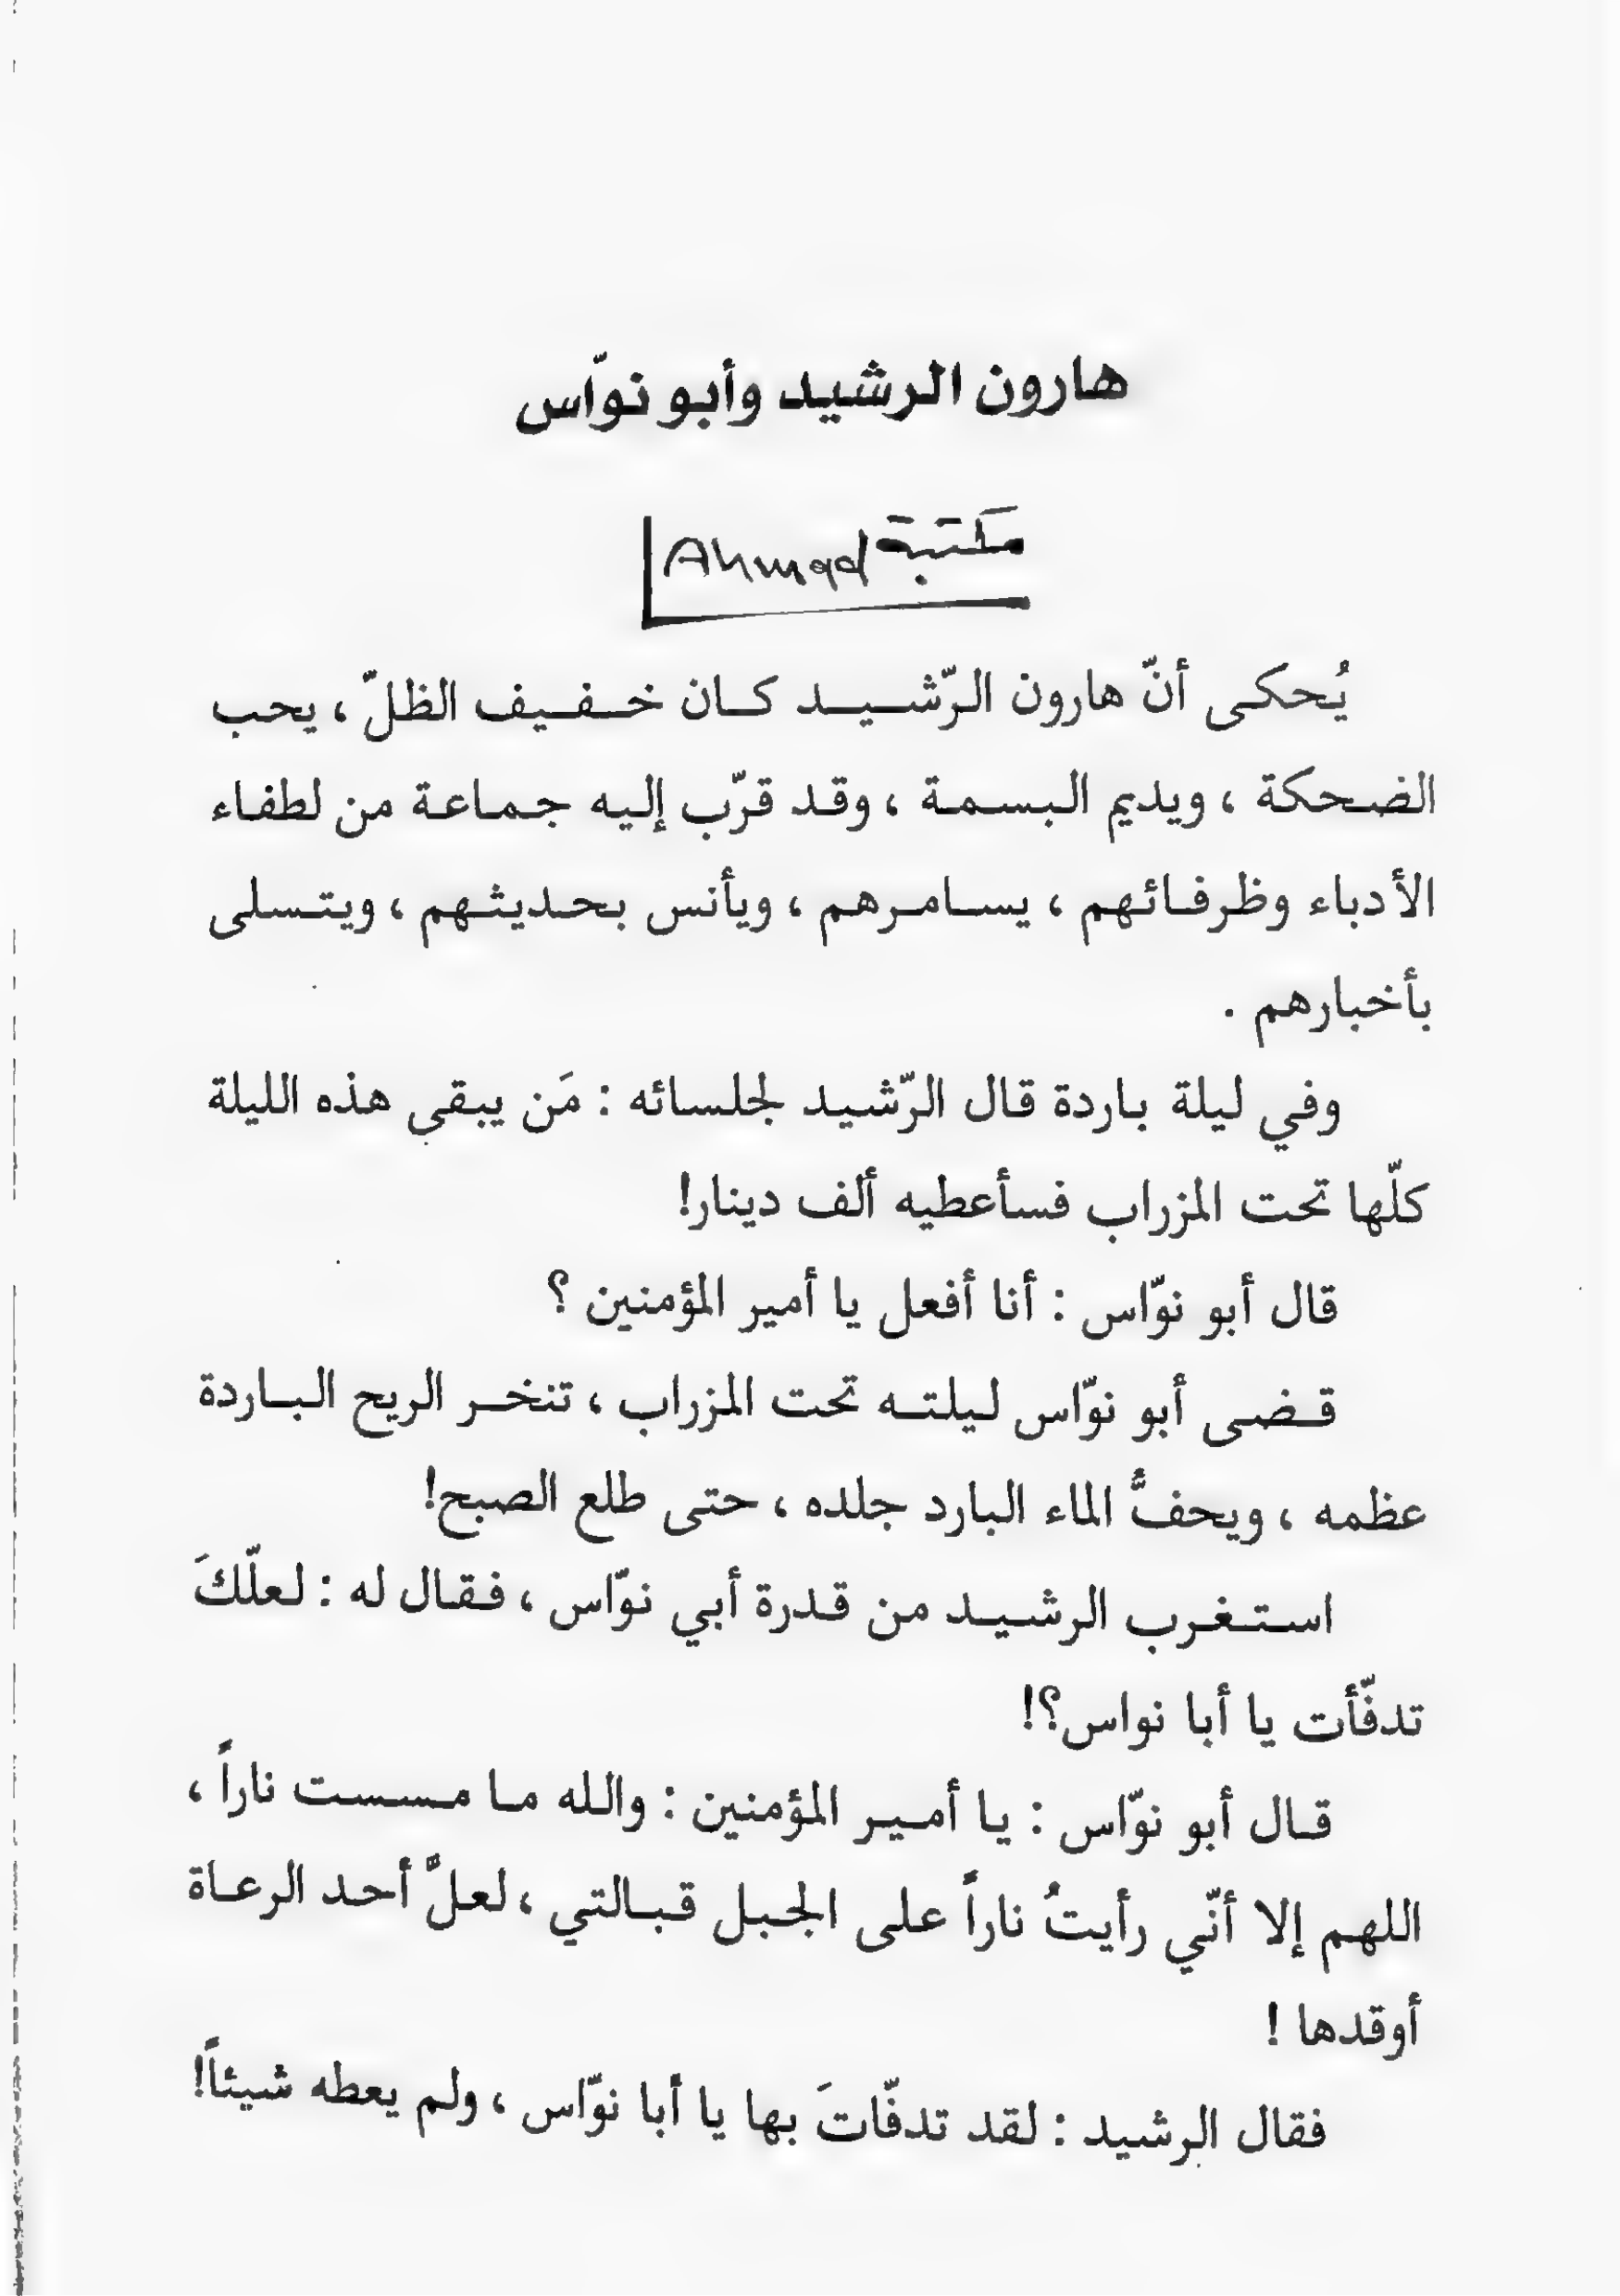 هارون الرشيد وأبو نوّاس
مكتبة Ahmad
يُحكى أنّ هارون الرّشيد كان خفيف الظلّ ، يحب
الضحكة ، ويديم البسمة ، وقد قرّب إليه جماعة من لطفاء
الأدباء وظرفائهم ، يسامرهم ، ويأنس بحديثهم ، ويتسلى
بأخبارهم .
وفي ليلة باردة قال الرّشيد لجلسائه : مَن يبقى هذه الليلة
كلّها تحت المزراب فسأعطيه ألف دينار!
قال أبو نوّاس : أنا أفعل يا أمير المؤمنين ؟
قضى أبو نوّاس ليلته تحت المزراب ، تنخر الريح الباردة
عظمه ، ويحفُّ الماء البارد جلده ، حتى طلع الصبح!
استغرب الرشيد من قدرة أبي نوّاس ، فقال له : لعلّكَ
تدفّأت يا أبا نواس؟!
قال أبو نوّاس : يا أمير المؤمنين : والله ما مسست ناراً ،
اللهم إلا أنّي رأيتُ ناراً على الجبل قبالتي ، لعلَّ أحد الرعاة
أوقدها !
فقال الرشيد : لقد تدفّاتَ بها يا أبا نوّاس ، ولم يعطه شيئاً!